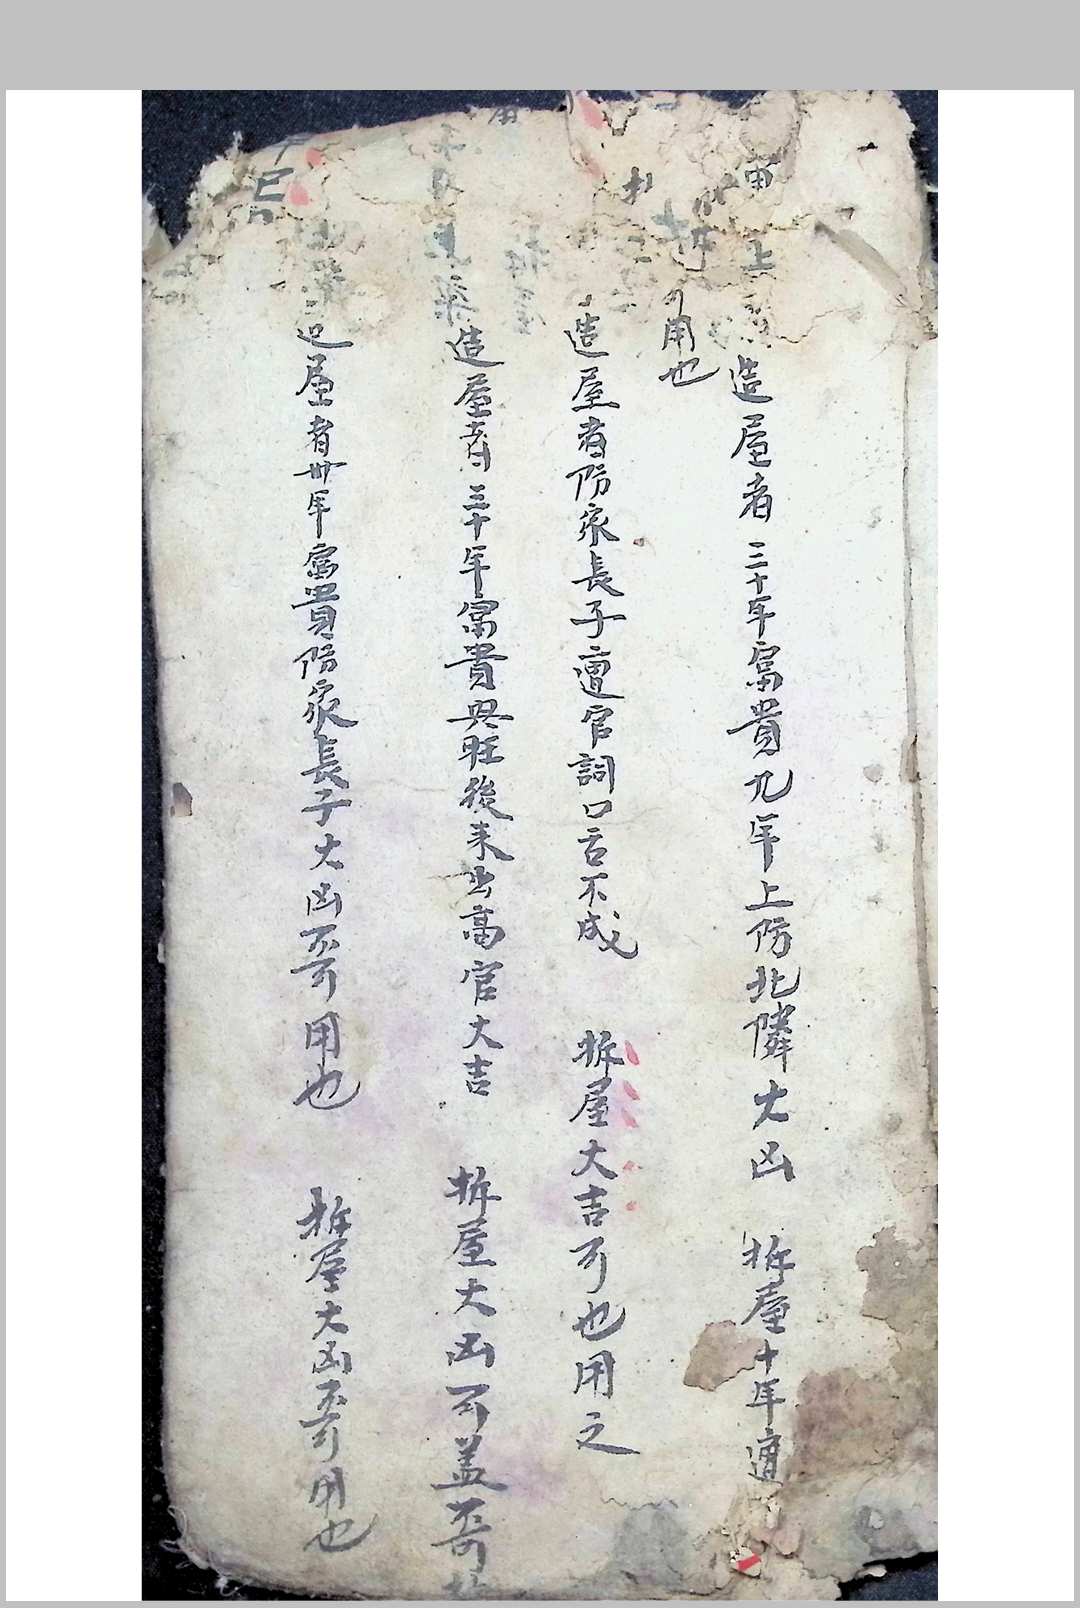 造屋者二十年富貴九年上防北隣大凶 拆屋十年遭
可用也
造屋者防家長子遭官詞口舌不成 拆屋大吉可也用之
造屋者三十年富貴興旺後来出高官大吉 拆屋大凶可盖不可
造屋者卅年富貴防家長子大凶不可用也 拆屋大凶不可用也